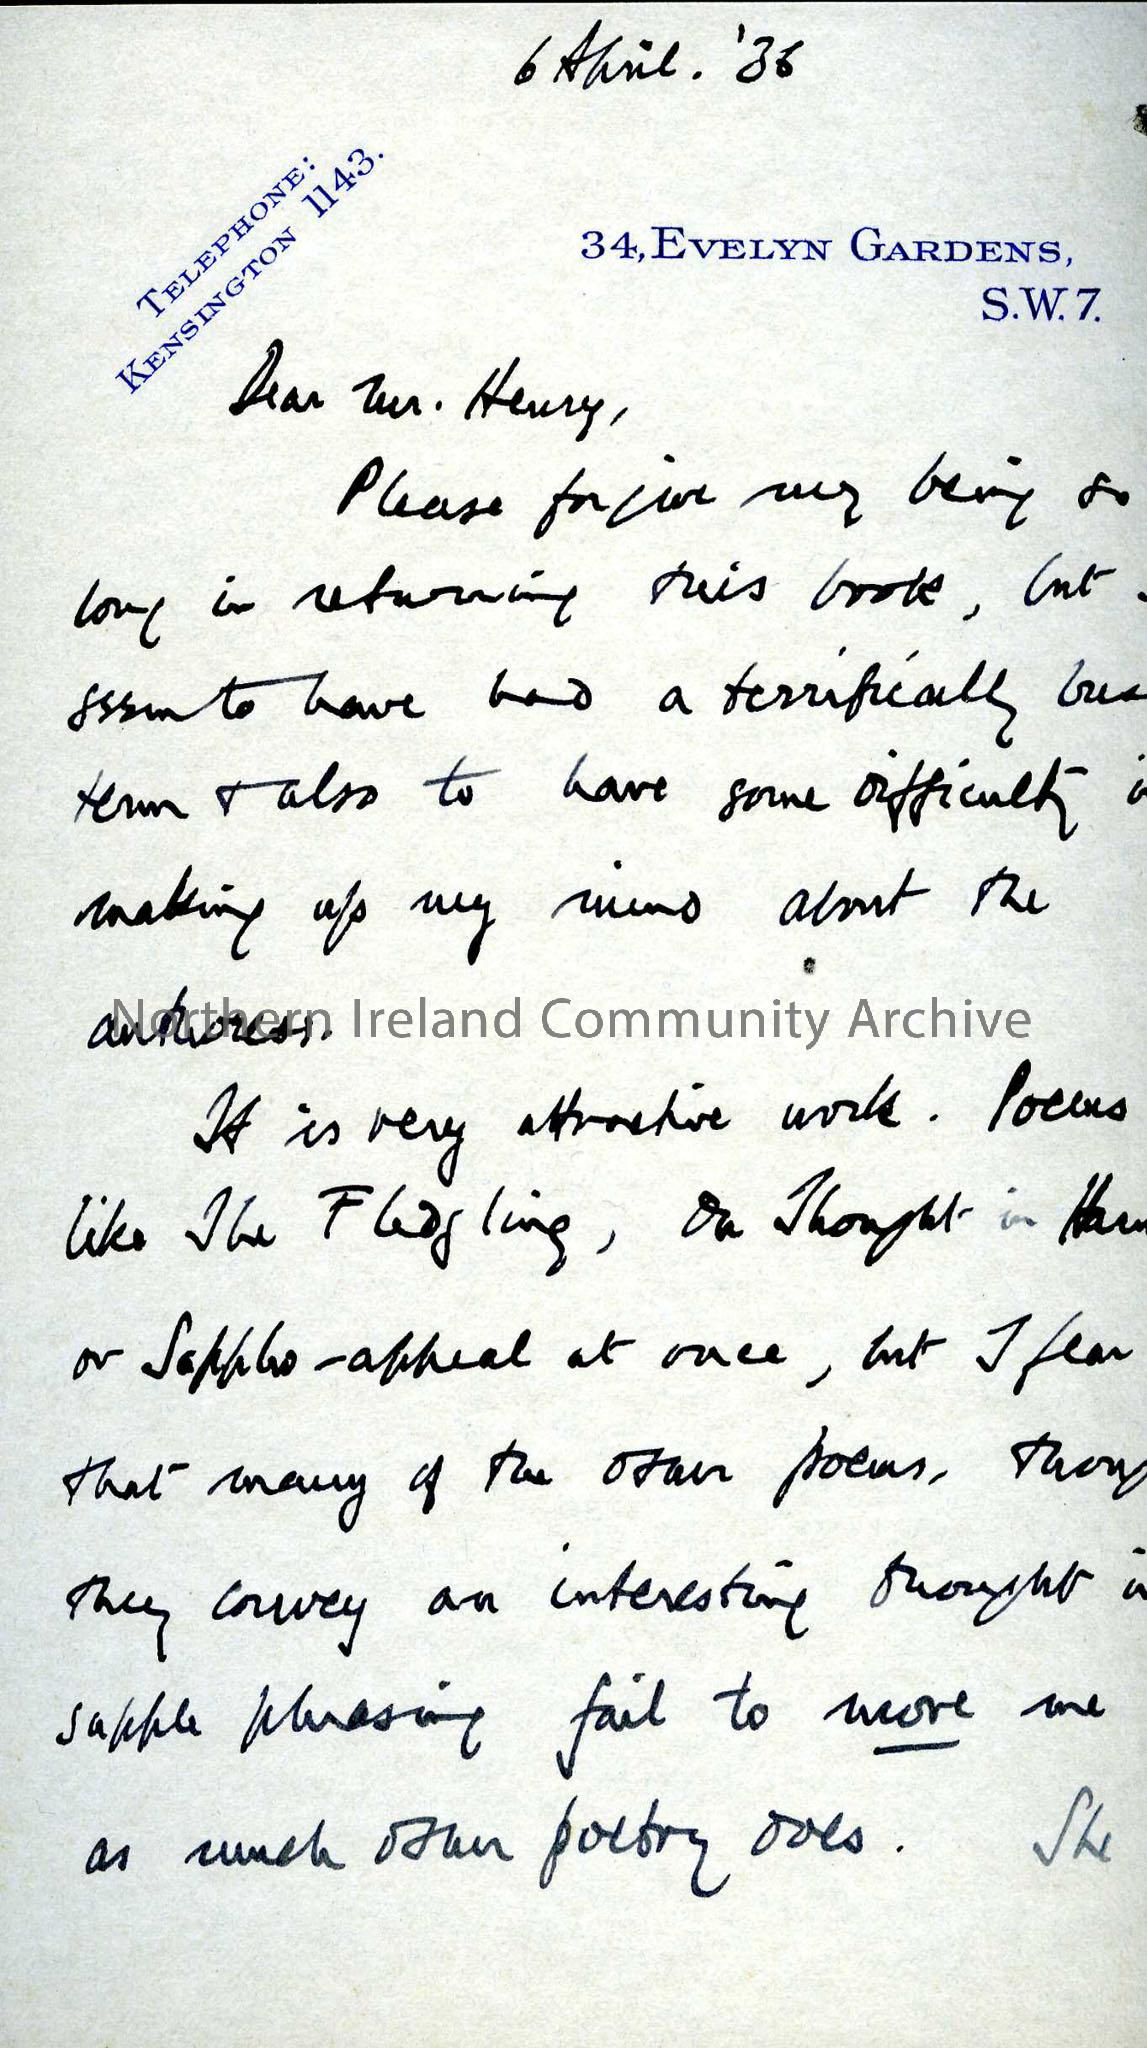 6 April. '36
TELEPHONE:
KENSINGTON 1143.
34, EVELYN GARDENS,
S.W.7.
Dear Mr. Henry,
Please forgive my being so
long in returning this book, but
seem to have had a terrifically
term & also to have some difficulty
making up my mind about the
Northern Ireland Community Archive
authoress.
It is very attractive work. Poems
like The Fledgling, On Thought in
or Sappho - appeal at once, but I fear
that many of the other poems, thoug
they convey an interesting thought
supple phrasing fail to move me
as much other poetry does. She